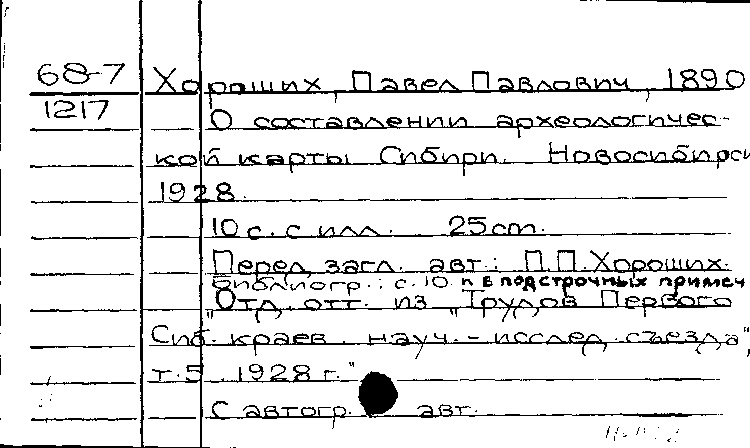 68-7 Хороших, Павел Павлович, 1890
1217 О составлении археологичес-
кой карты Сибири. Новосибирск
1928.
10 с. с илл. 25 cm.
Перед загл. авт.: П.П.Хороших.
Библиогр.: с. 10 и в подстрочных примеч
"Отд. отт. из „Трудов Первого
Сиб. краев. науч.-исслед. съезда",
т.5 1928 г."
С автогр. авт.